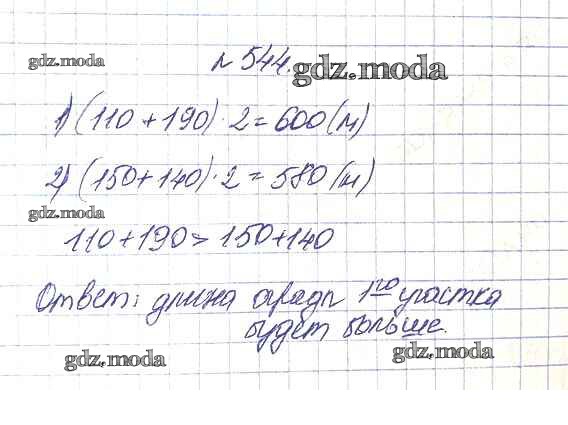 gdz.moda
№ 544. gdz.moda
1) (110 + 190) · 2 = 600 (м)
2) (150 + 140) · 2 = 580 (м)
gdz.moda
110 + 190 > 150 + 140
Ответ: длина ограды 1го участка
будет больше.
gdz.moda
gdz.moda